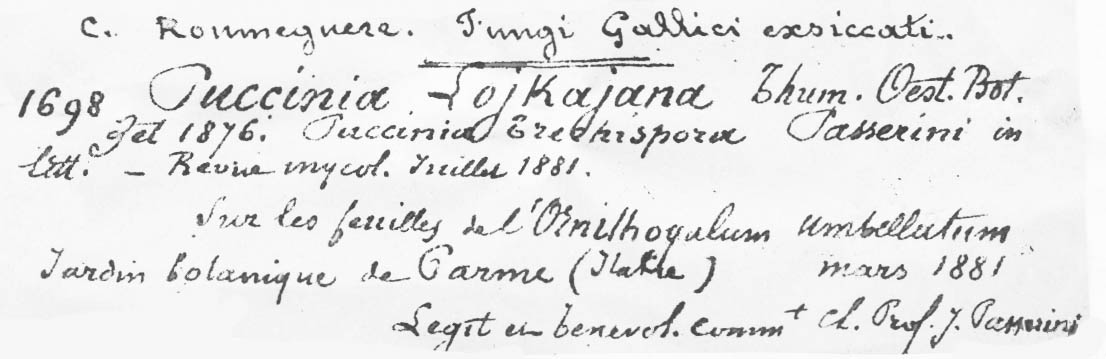 C. Roumeguere. Fungi Gallici exsiccati..
1698 Puccinia Lojkajana Thum. Oest. Bot.
Zet 1876. Puccinia trechispora Passerini in
litt. – Revue mycol. Juillet 1881.
Sur les feuilles de l'Ornithogalum umbellatum
Jardin botanique de Parme (Italie) mars 1881
Legit et benevol. comm+ Cl. Prof. J. Passerini